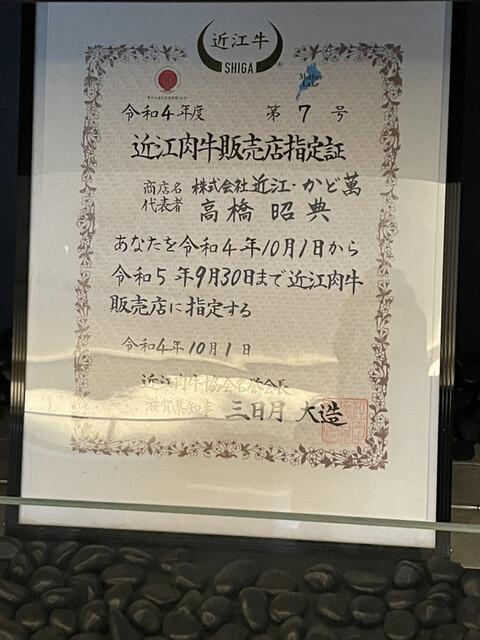 近江牛
SHIGA
Mother
Lake
令和4年度 第7号
近江肉牛販売店指定証
商店名 株式会社近江・かど萬
代表者 高橋昭典
あなたを令和4年10月1日から
令和5年9月30日まで近江肉牛
販売店に指定する
令和4年10月1日
近江肉牛協会名誉会長
滋賀県知事 三日月大造